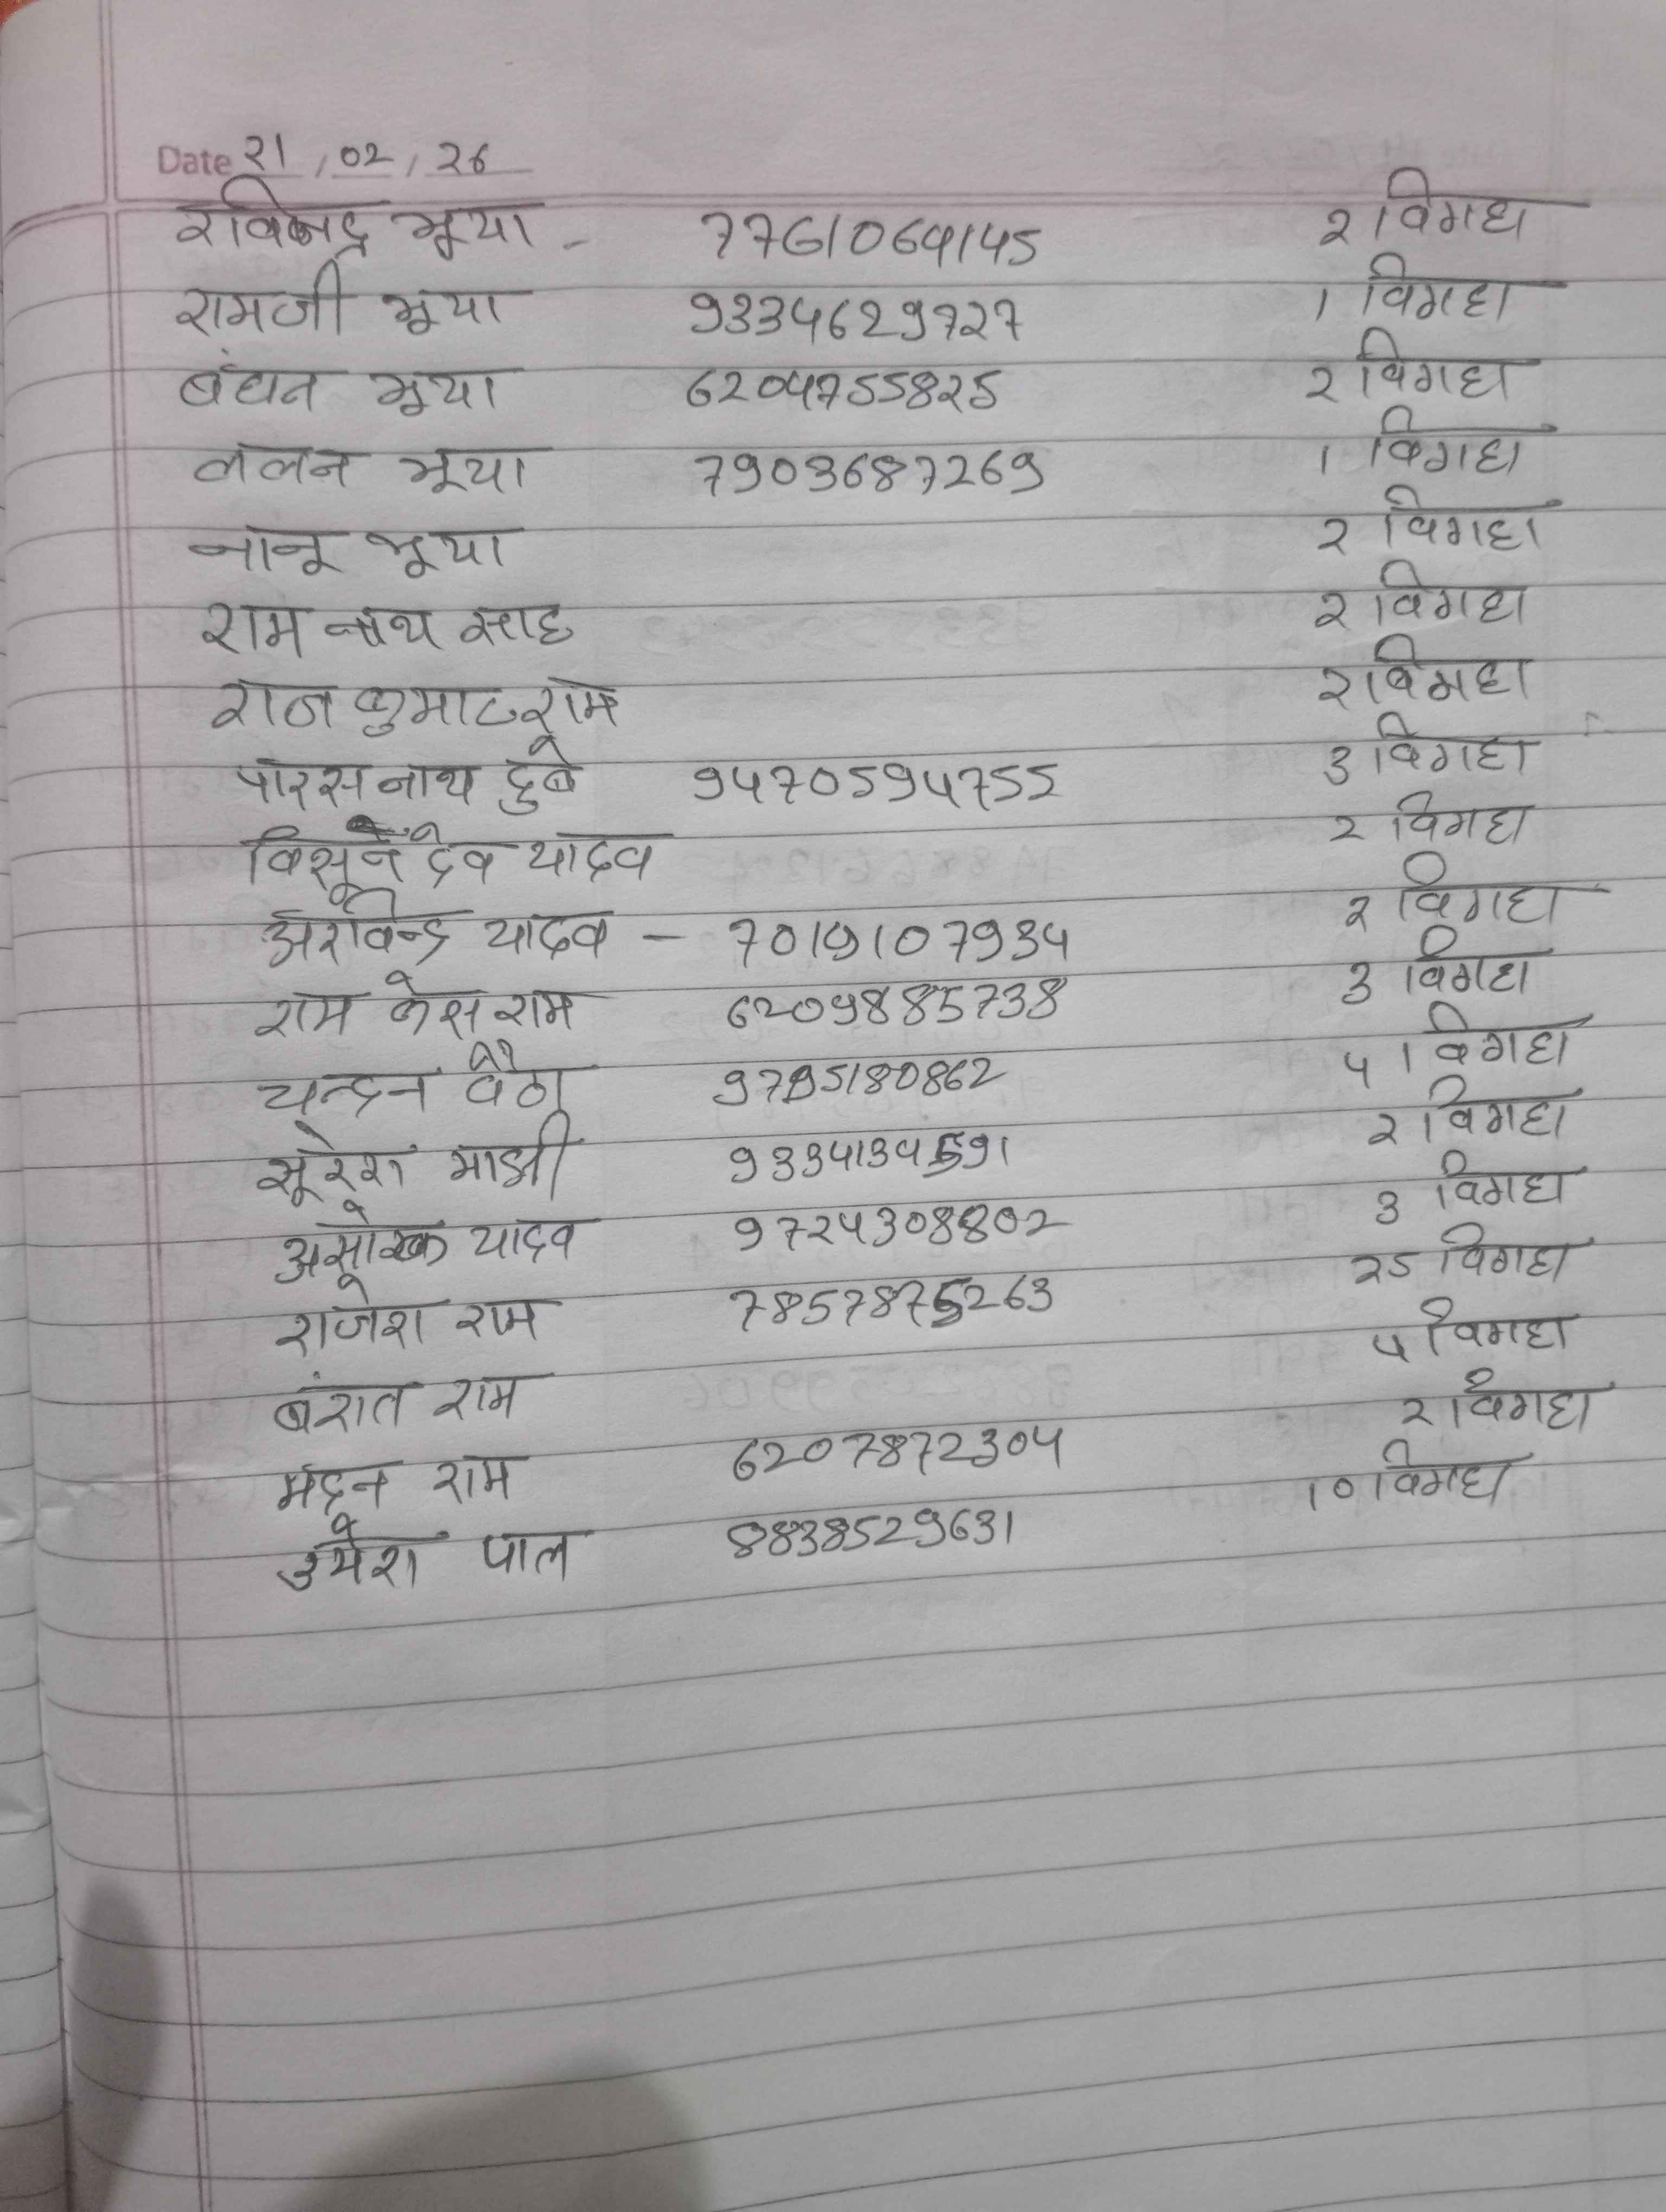 Date 21/02/26
रविन्द्र भूया - 7761064145 2 विगहा
रामजी भूया 9334629727 1 विगहा
बंधन भूया 6204755825 2 विगहा
ललन भूया 7903687269 1 विगहा
नानू भूया 2 विगहा
राम नाथ साह 2 विगहा
राज कुमार राम 2 विगहा
पारस नाथ दुबे 9470594755 3 विगहा
देव यादव 2 विगहा
अरविन्द्र यादव - 7019107934 2 विगहा
राम केस राम 6209885738 3 विगहा
चन्दन बैठा 9795180862 5 विगहा
सूरेश माझी 9334134591 2 विगहा
यादव 9724308802 3 विगहा
राजेश राम 7857875263 25 विगहा
बंशत राम 5 विगहा
मदन राम 6207872304 2 विगहा
उमेश पाल 8838529631 10 विगहा